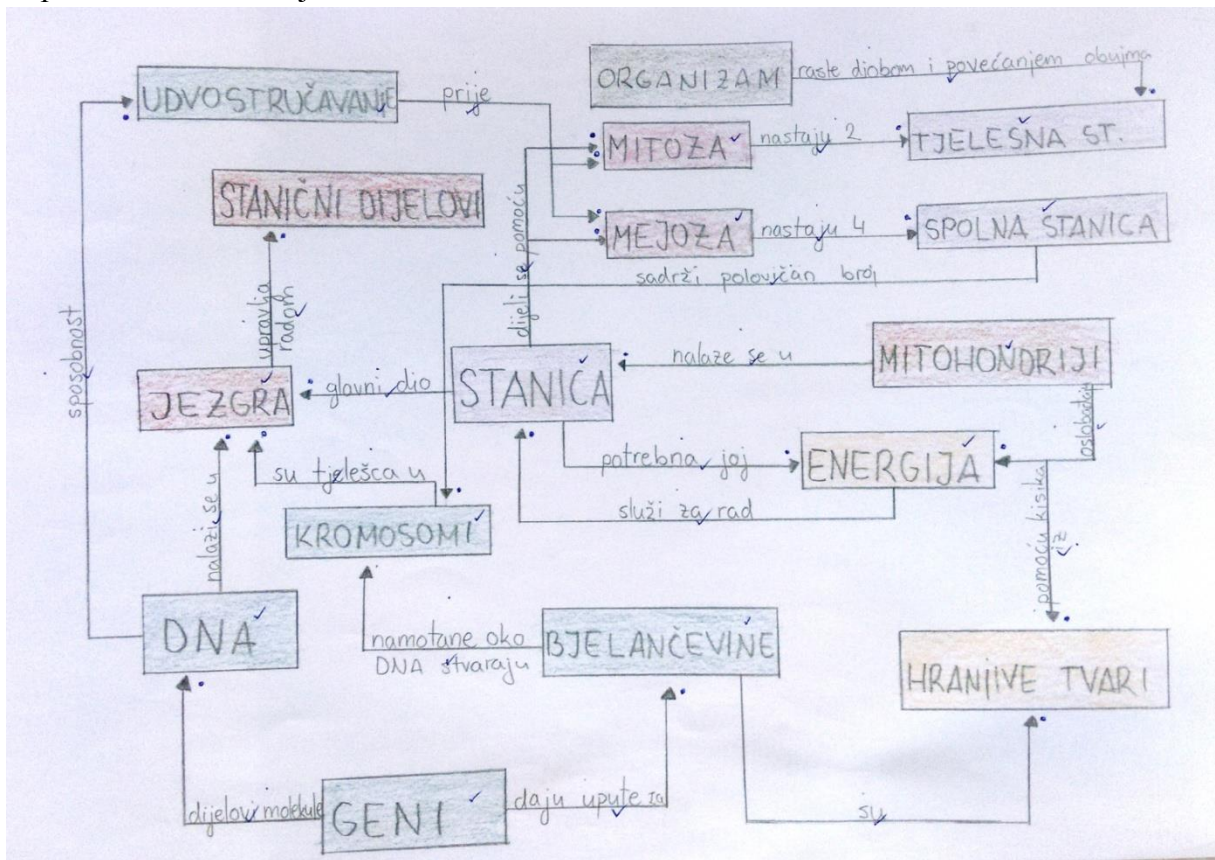 UDVOSTRUČAVANJE
prije
ORGANIZAM
raste diobom i povećanjem obujma
MITOZA
nastaju 2
TJELESNA ST.
STANIČNI DIJELOVI
MEJOZA
nastaju 4
SPOLNA STANICA
sadrži polovičan broj
dijeli se pomoću
upravlja
radom
sposobnost
JEZGRA
glavni dio
STANICA
nalaze se u
MITOHONDRIJI
oslobađaju
potrebna joj
ENERGIJA
su tjelešca u
služi za rad
KROMOSOMI
nalazi se u
pomoću kisika
iz
DNA
namotane oko
DNA stvaraju
BJELANČEVINE
HRANJIVE TVARI
dijelovi molekule
GENI
daju upute za
su